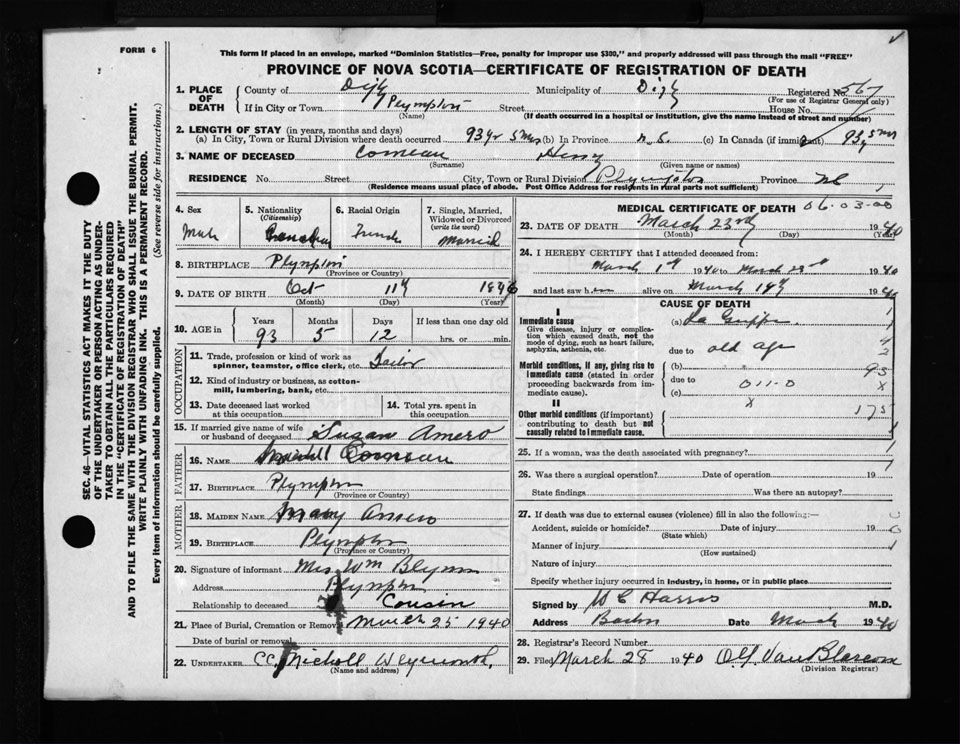 FORM 6
This form if placed in an envelope, marked "Dominion Statistics—Free, penalty for improper use $300," and properly addressed will pass through the mail "FREE"
PROVINCE OF NOVA SCOTIA—CERTIFICATE OF REGISTRATION OF DEATH
SEC. 46—VITAL STATISTICS ACT MAKES IT THE DUTY
OF THE UNDERTAKER OR PERSON ACTING AS UNDER-
TAKER TO OBTAIN ALL THE PARTICULARS REQUIRED
IN THE "CERTIFICATE OF REGISTRATION OF DEATH"
AND TO FILE THE SAME WITH THE DIVISION REGISTRAR WHO SHALL ISSUE THE BURIAL PERMIT.
WRITE PLAINLY WITH UNFADING INK. THIS IS A PERMANENT RECORD.
Every item of information should be carefully supplied. (See reverse side for instructions.)
1. PLACE OF DEATH County of Digby Municipality of Digby Registered No. 567
(For use of Registrar General only)
If in City or Town Plympton Street House No.
(Name) (If death occurred in a hospital or institution, give the name instead of street and number)
2. LENGTH OF STAY (in years, months and days)
(a) In City, Town or Rural Division where death occurred 93 yr 5 mos (b) In Province N.S. (c) In Canada (if immigrant) 93 y 5 mos
3. NAME OF DECEASED Comeau Henry
(Surname) (Given name or names)
RESIDENCE No. Street City, Town or Rural Division Plympton Province NS
(Residence means usual place of abode. Post Office Address for residents in rural parts not sufficient)
4. Sex
Male
5. Nationality
(Citizenship)
Canadian
6. Racial Origin
French
7. Single, Married,
Widowed or Divorced
(write the word)
Married
8. BIRTHPLACE Plympton
(Province or Country)
9. DATE OF BIRTH Oct 11th 1846
(Month) (Day) (Year)
10. AGE in Years Months Days If less than one day old
93 5 12 hrs. or min.
OCCUPATION
11. Trade, profession or kind of work as
spinner, teamster, office clerk, etc. Sailor
12. Kind of industry or business, as cotton-
mill, lumbering, bank, etc.
13. Date deceased last worked
at this occupation
14. Total yrs. spent in
this occupation
15. If married give name of wife
or husband of deceased Susan Amero
FATHER
16. Name Comeau
17. BIRTHPLACE Plympton
(Province or Country)
MOTHER
18. MAIDEN NAME Mary Amero
19. BIRTHPLACE Plympton
(Province or Country)
20. Signature of informant Mrs Wm Blynn
Address Plympton
Relationship to deceased Cousin
21. Place of Burial, Cremation or Removal March 25 1940
Date of burial or removal
22. UNDERTAKER CC. Nickoll Weymouth
(Name and address)
MEDICAL CERTIFICATE OF DEATH 06-03-00
23. DATE OF DEATH March 23rd 1940
(Month) (Day) (Year)
24. I HEREBY CERTIFY that I attended deceased from:
March 1st 1940 to March 23rd 1940
and last saw him alive on March 18th 1940
CAUSE OF DEATH
I
Immediate cause
Give disease, injury or complica-
tion which caused death, not the
mode of dying, such as heart failure,
asphyxia, asthenia, etc.
(a) La Grippe
due to old age
Morbid conditions, if any, giving rise to
immediate cause (stated in order
proceeding backwards from im-
mediate cause).
(b)
due to 011-0
(c)
II
Other morbid conditions (if important)
contributing to death but not
causally related to immediate cause.
x
1
4
2
93
x
175
25. If a woman, was the death associated with pregnancy?
26. Was there a surgical operation? Date of operation 19
State findings Was there an autopsy?
27. If death was due to external causes (violence) fill in also the following:—
Accident, suicide or homicide? Date of injury 19
(State which)
Manner of injury
(How sustained)
Nature of injury
Specify whether injury occurred in industry, in home, or in public place
Signed by W C Harris M.D.
Address Date March 1940
28. Registrar's Record Number
29. Filed March 28 1940 Van Blarcom
(Division Registrar)